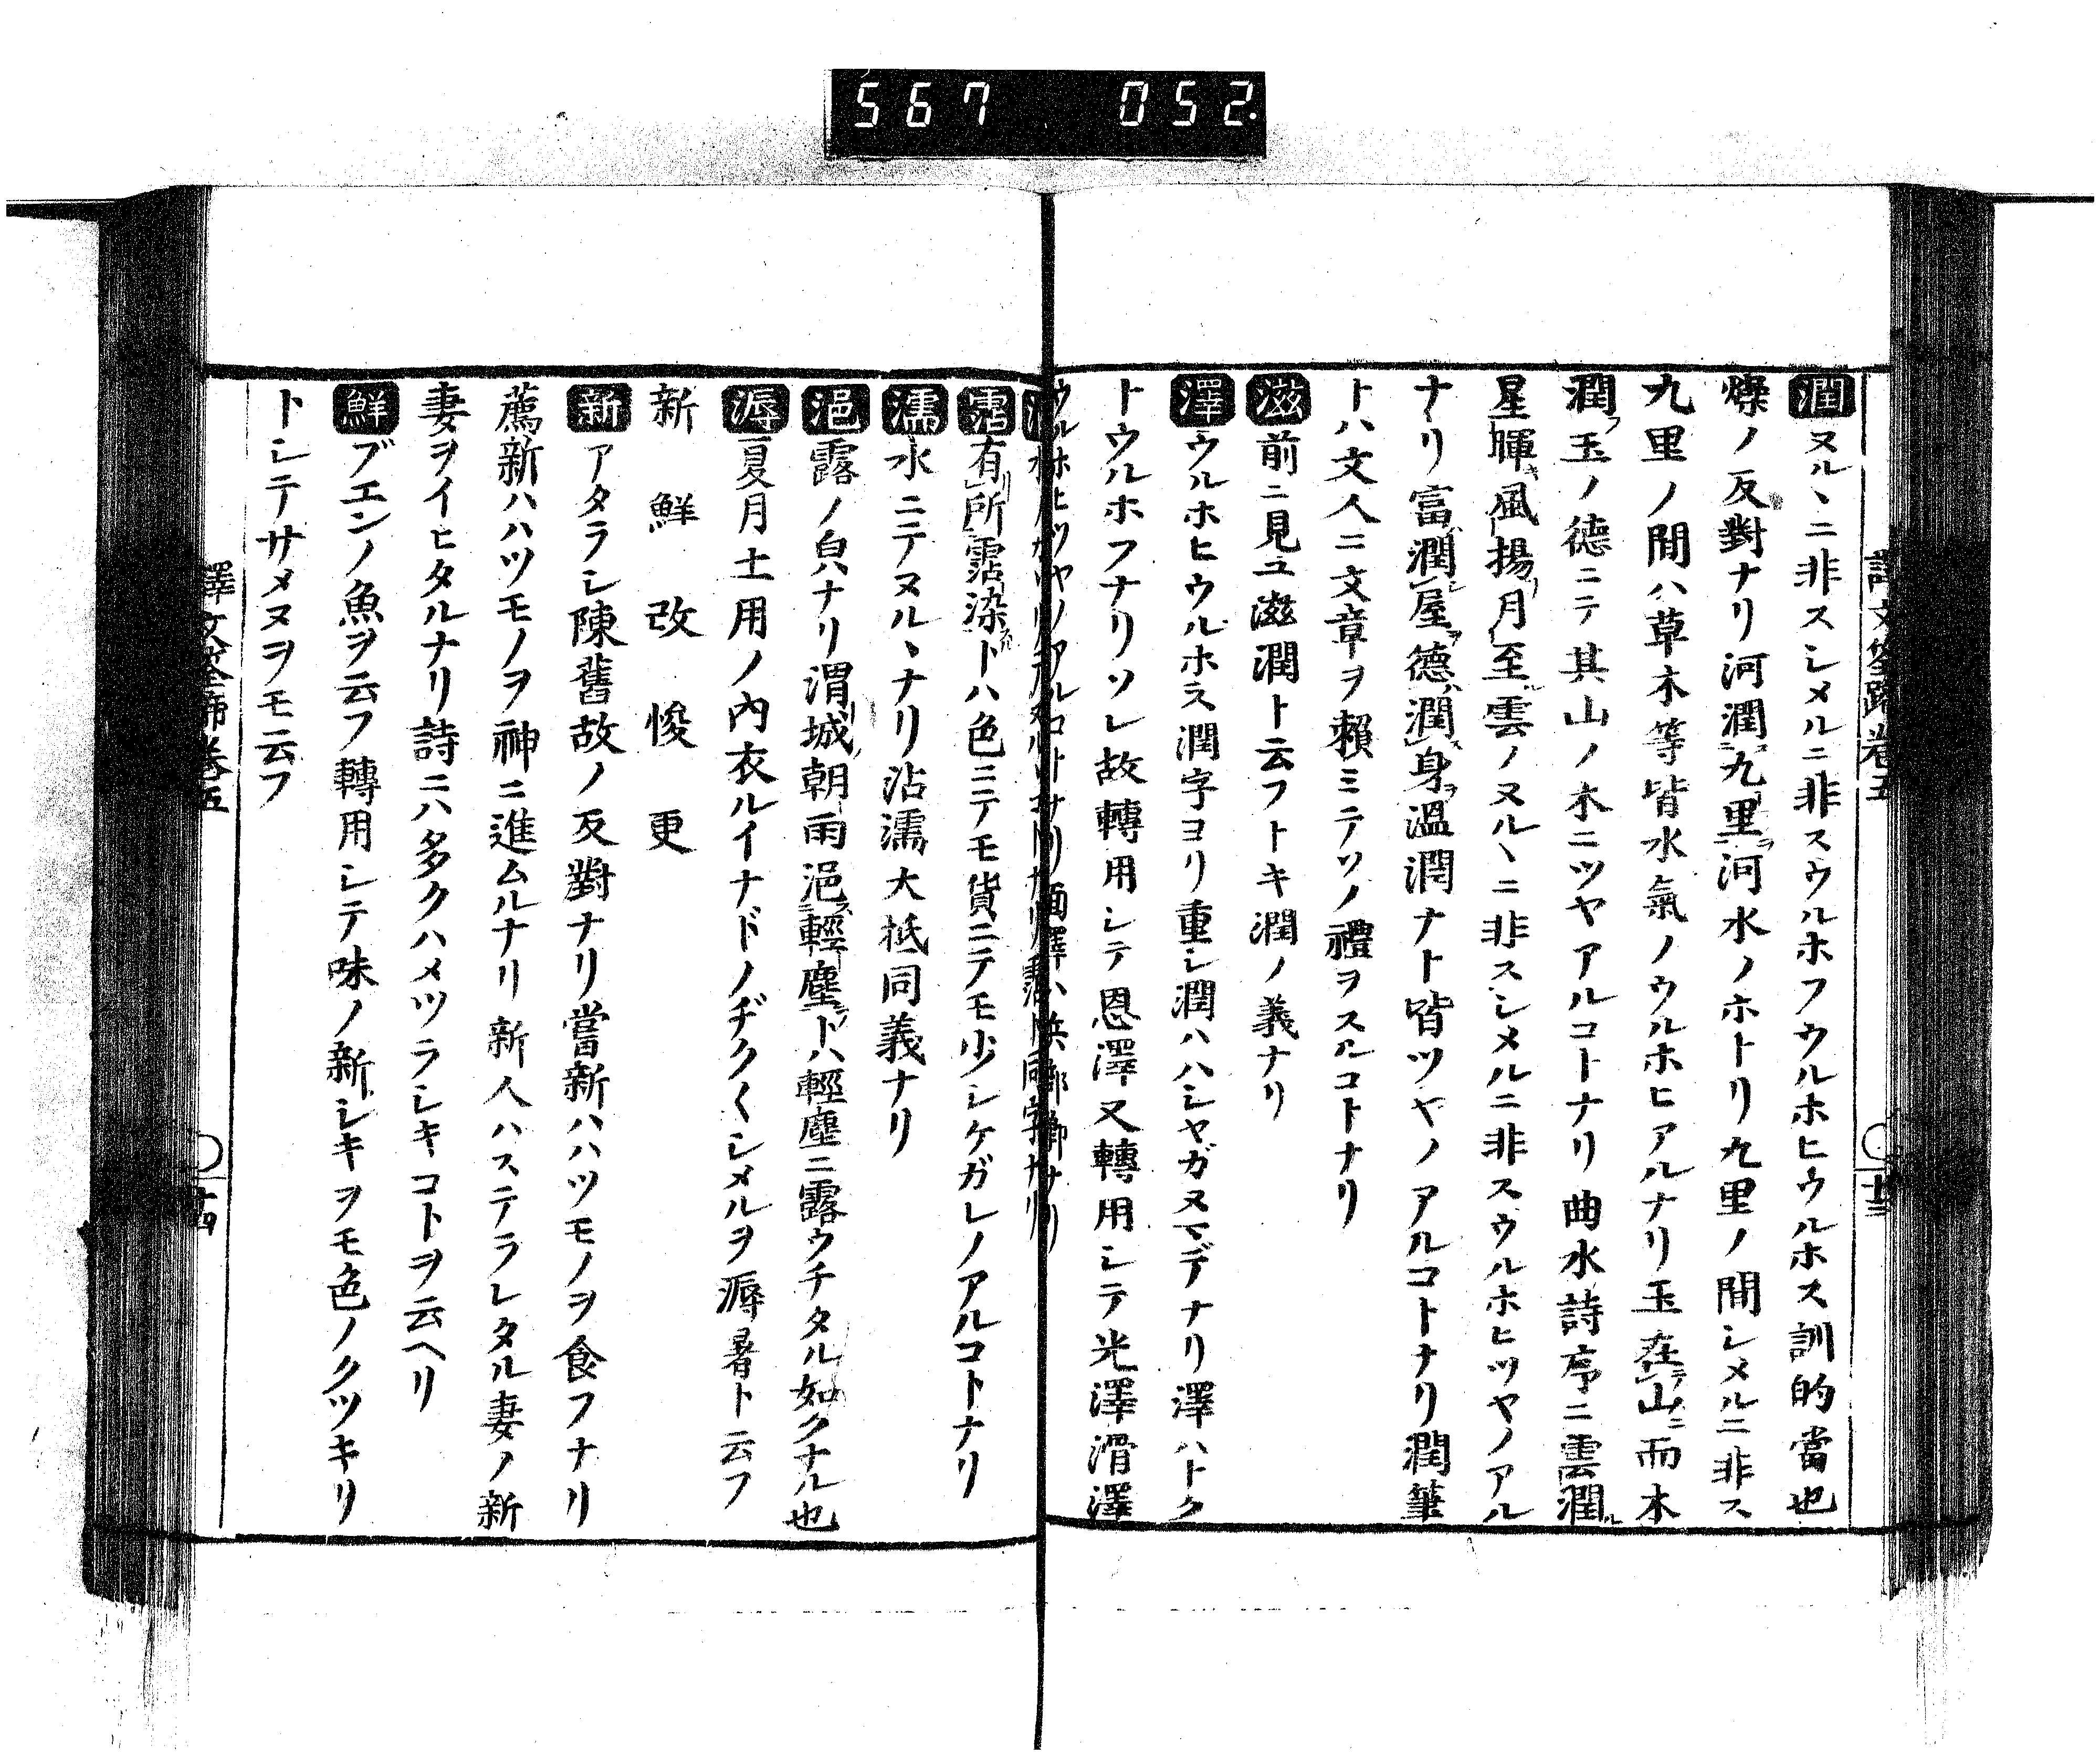 567 052.
譯文筌蹄卷五 〇 十三
潤 ヌルヽニ非スシメルニ非スウルホフウルホヒウルホス訓的當也
燥ノ反對ナリ河潤九里河水ノホトリ九里ノ間シメルニ非ス
九里ノ間ハ草木等皆水氣ノウルホヒアルナリ玉在山而木
潤フ玉ノ德ニテ其山ノ木ニツヤアルコトナリ曲水詩序ニ雲潤ル
星暉キ風揚月至雲ノヌルヽニ非スシメルニ非スウルホヒツヤノアル
ナリ富潤屋德潤身溫潤ナト皆ツヤノアルコトナリ潤筆
トハ文人ニ文章ヲ賴ミテソノ禮ヲスルコトナリ
滋 前ニ見ユ滋潤ト云フトキ潤ノ義ナリ
澤 ウルホヒウルホス潤字ヨリ重シ潤ハハシヤガヌマデナリ澤ハトク
トウルホフナリソレ故轉用シテ恩澤又轉用シテ光澤滑澤
ウルホヒツヤノアルコトナリ面澤ハ
霑 有所霑染トハ色ニテモ貨ニテモ少シケガレノアルコトナリ
濡 水ニテヌルヽナリ沾濡大抵同義ナリ
浥 露ノ皃ナリ渭城朝雨浥輕塵トハ輕塵ニ露ウチタル如クナル也
溽 夏月土用ノ內衣ルイナドノヂク〱シメルヲ溽暑ト云フ
新 鮮 改 悛 更
新 アタラシ陳舊故ノ反對ナリ嘗新ハハツモノヲ食フナリ
薦新ハハツモノヲ神ニ進ムルナリ新人ハステラレタル妻ノ新
妻ヲイヒタルナリ詩ニハ多クハメツラシキコトヲ云ヘリ
鮮 ブエンノ魚ヲ云フ轉用シテ味ノ新シキヲモ色ノクツキリ
トシテサメヌヲモ云フ
譯文筌蹄卷五 〇 十四